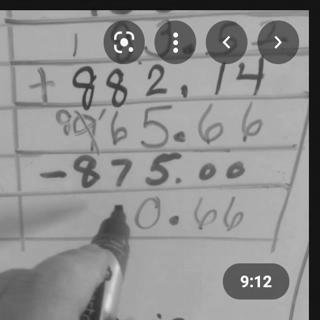 + 882.14
65.66
- 875.00
0.66
9:12